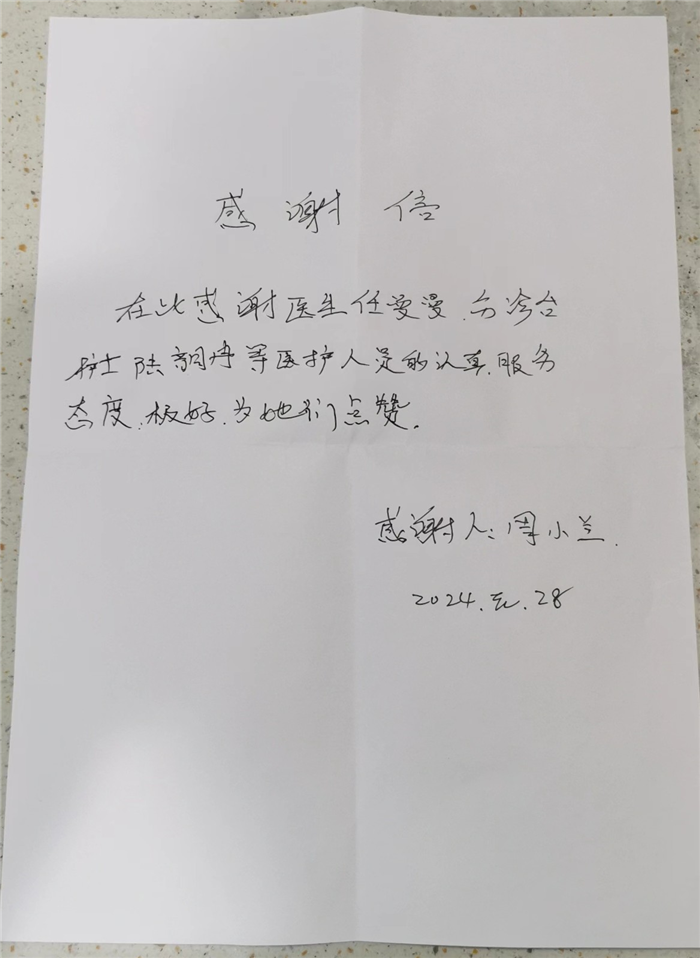 感谢信
在此感谢医生任曼漫、分诊台
护士陆丹等医护人员的认真服务
态度，极好，为她们点赞。
感谢人：周小兰.
2024.元.28